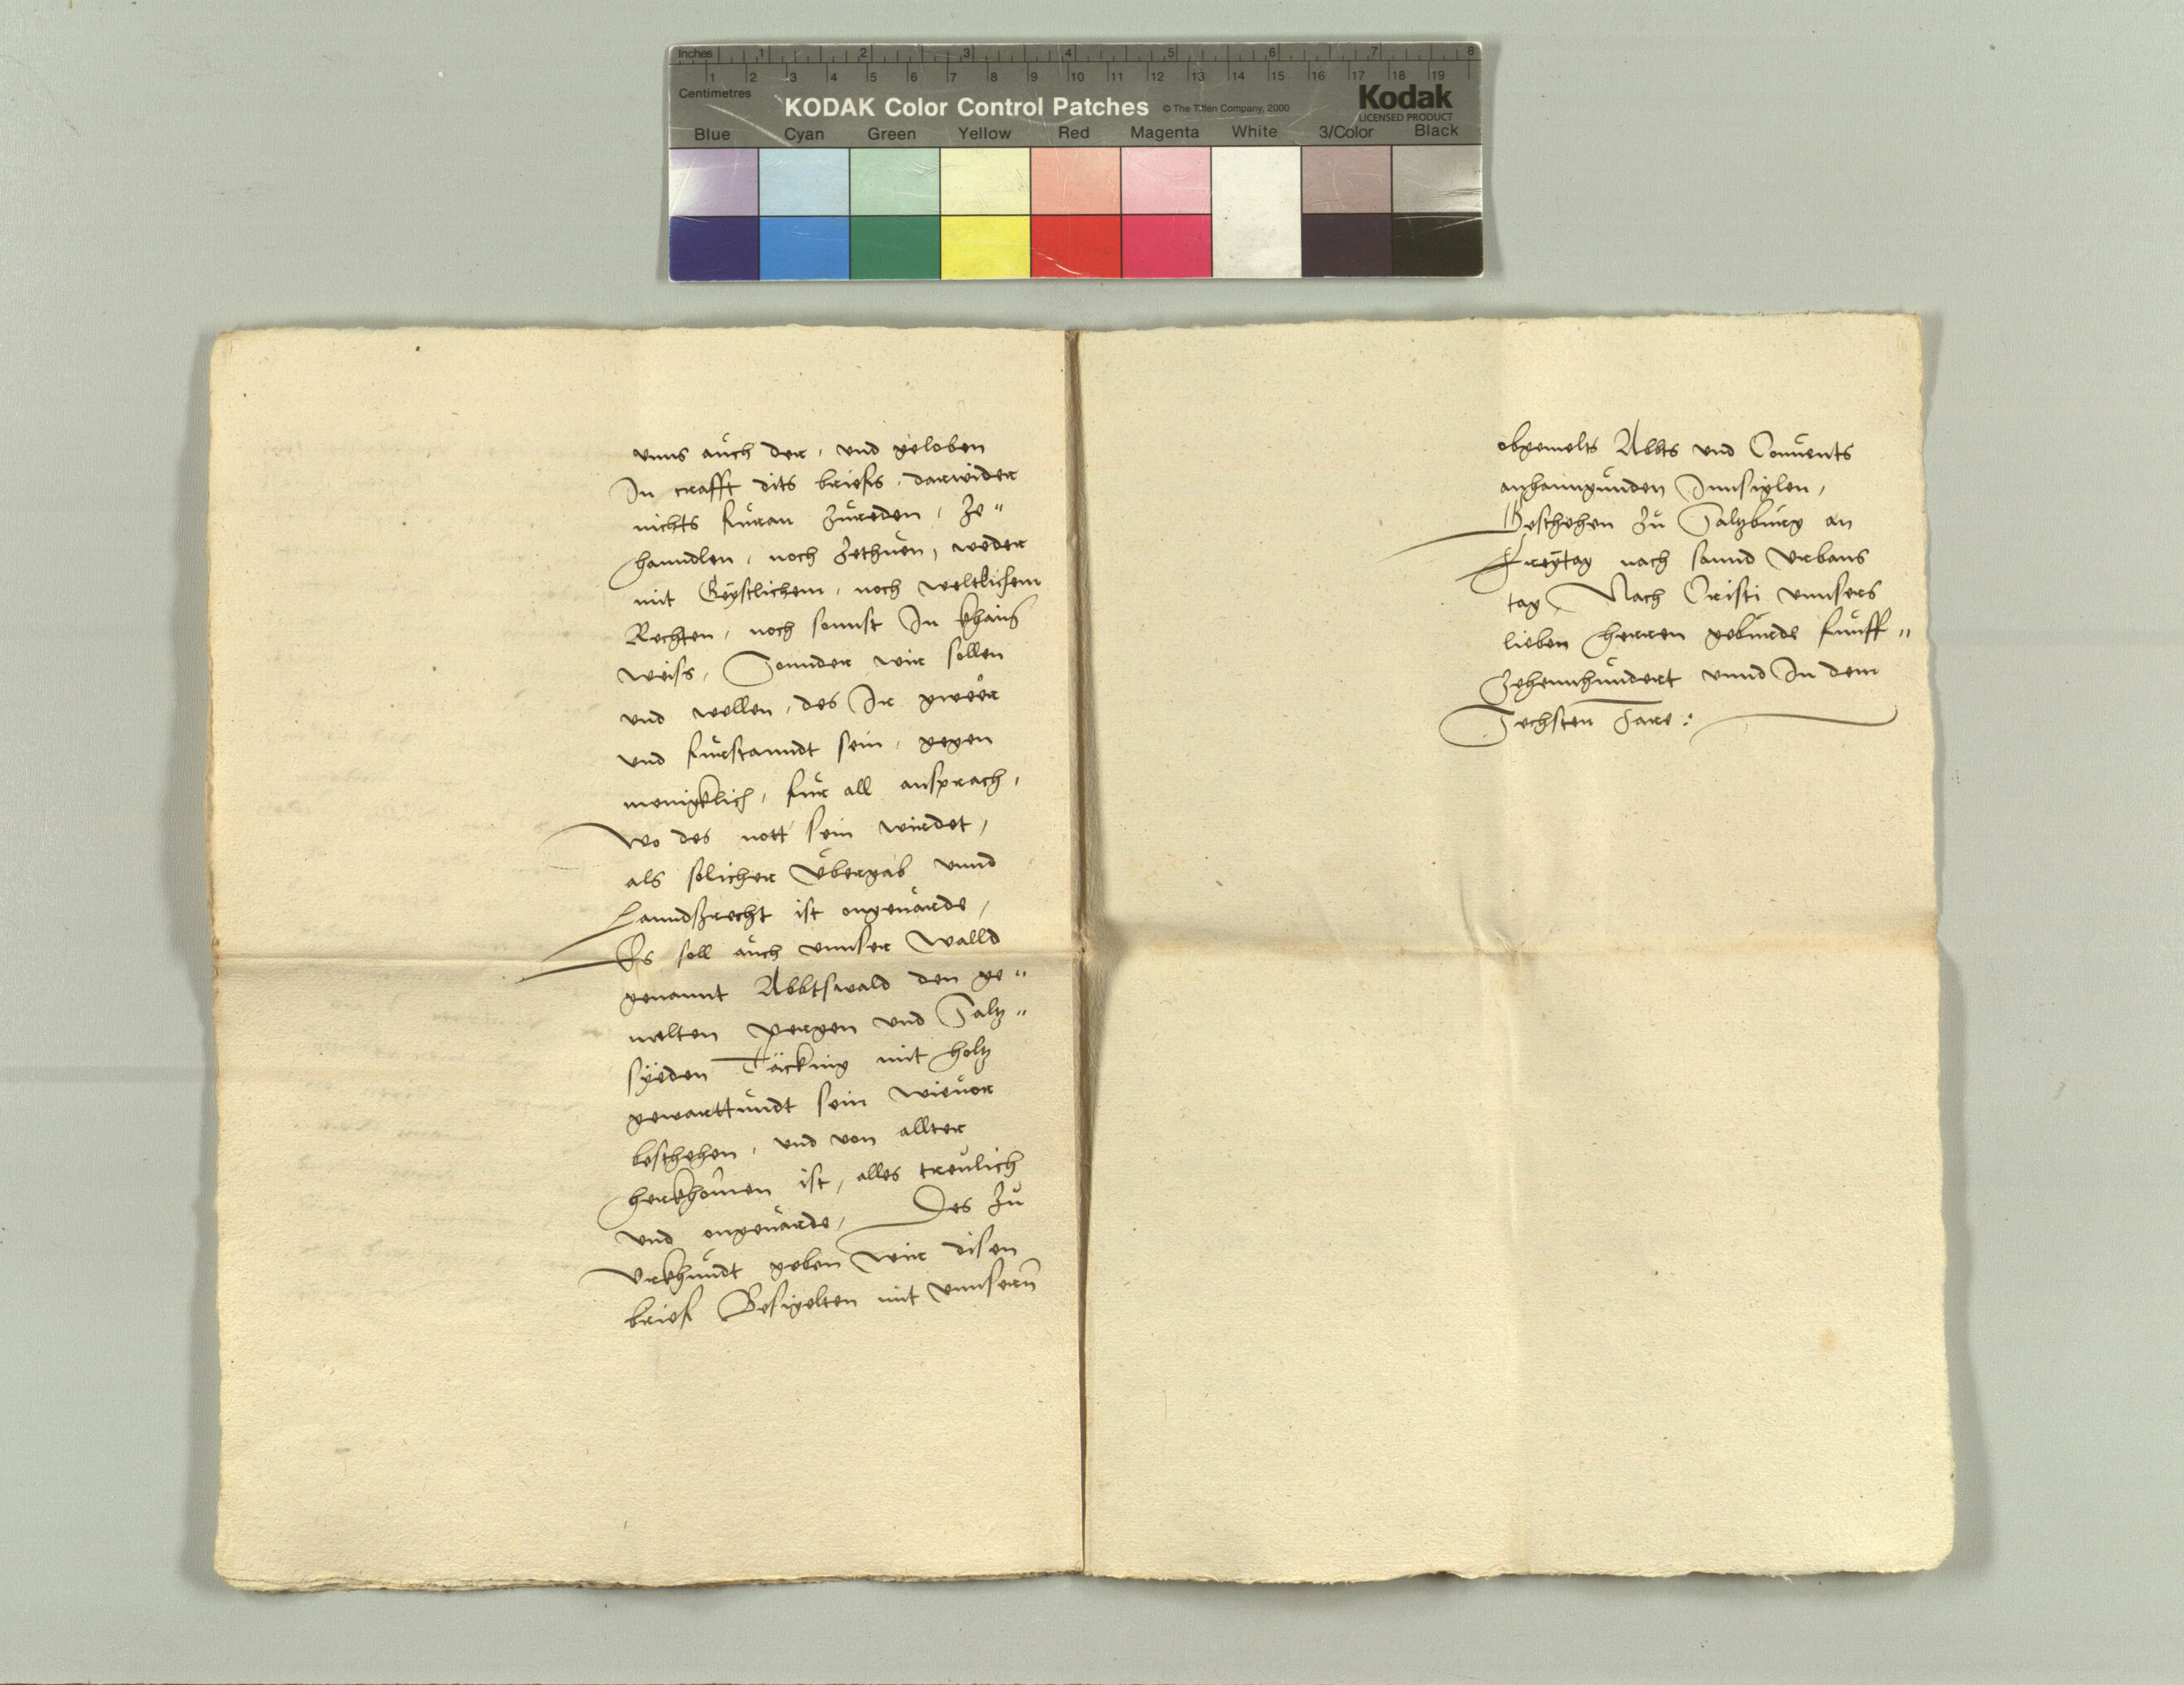 Inches 1 2 3 4 5 6 7 8
1 2 3 4 5 6 7 8 9 10 11 12 13 14 15 16 17 18 19
Centimetres
KODAK Color Control Patches © The Tiffen Company, 2000 Kodak
LICENSED PRODUCT
Blue Cyan Green Yellow Red Magenta White 3/Color Black
vnns auch der, vnd geloben
In crafft dits briefs, darwider
nichts furan zureden, ze"
hanndlen, noch zethuen, weder
mit Geystlichem, noch weltlichem
Rechten, noch sonnst In khain
weiss, Sonnder wir sollen
vnd wellen, des Ir gweer
vnd furstanndt sein, gegen
menigklich, fur all ansprach,
wo des nott sein wirdet,
als solicher vbergab vnnd
Lanndszrecht ist ongeuärde,
Es soll auch vnnser Walld
genannt Abbtswald den ge"
melten pergen vnd Saltz"
syeden Täcking mit holtz
gewarttundt sein wieuor
beschehen, vnd von allter
herkhomen ist, alles treulich
vnd ongeuärde, Des zu
Vrkhundt geben wir disen
brief Besigelten mit vnnsern
obgemelts Abbts vnd Conuents
anhanngunden Innsiglen,
Geschehen zu Saltzburg an
Freytag nach sannd Vrbans
tag, Nach Cristi vnnsers
lieben herren geburde funff"
zehennhundert vnnd In dem
Sechsten Jare: